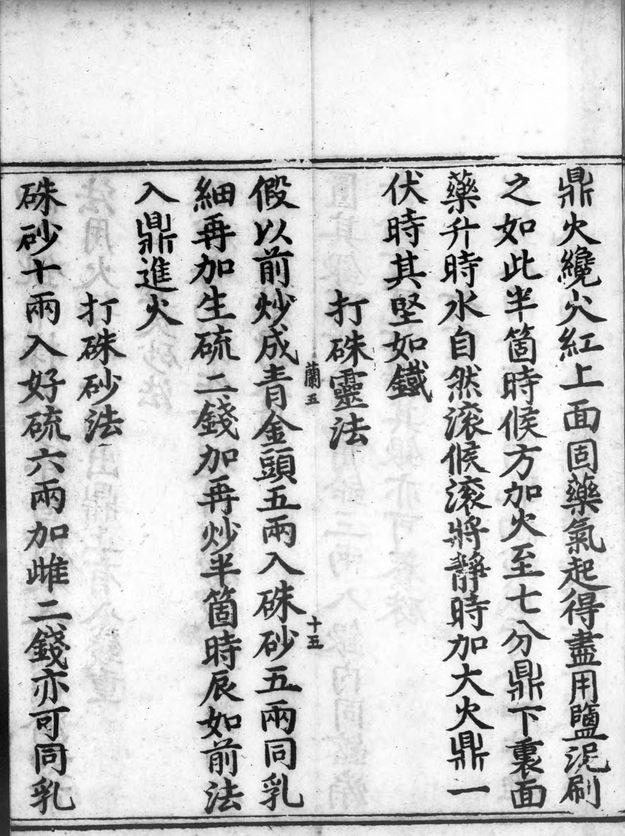 鼎火纔火紅上面固藥氣起得盡用鹽泥刷
之如此半箇時候方加火至七八分鼎下裏面
藥升時水自然滾候滾將靜時加大火鼎一
伏時其堅如鐵
打硃靈法
蘭五
十五
假以前炒成青金頭五兩入硃砂五兩同乳
細再加生硫二錢加再炒半箇時辰如前法
入鼎進火
打硃砂法
硃砂十兩入好硫六兩加雌二錢亦可同乳